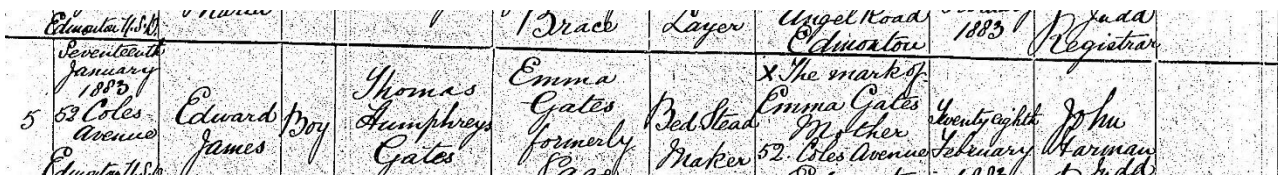 Edmonton U.S.D.
Brace
Layer
Angel Road
Edmonton
1883
J Judd
Registrar
5
Seventeenth
January
1883
52 Coles
Avenue
Edmonton U.S.D.
Edward
James
Boy
Thomas
Humphreys
Gates
Emma
Gates
formerly
Bed Stead
Maker
X The mark of
Emma Gates
Mother
52. Coles Avenue
Edmonton
Twenty eighth
February
1883
John
Harman
Judd